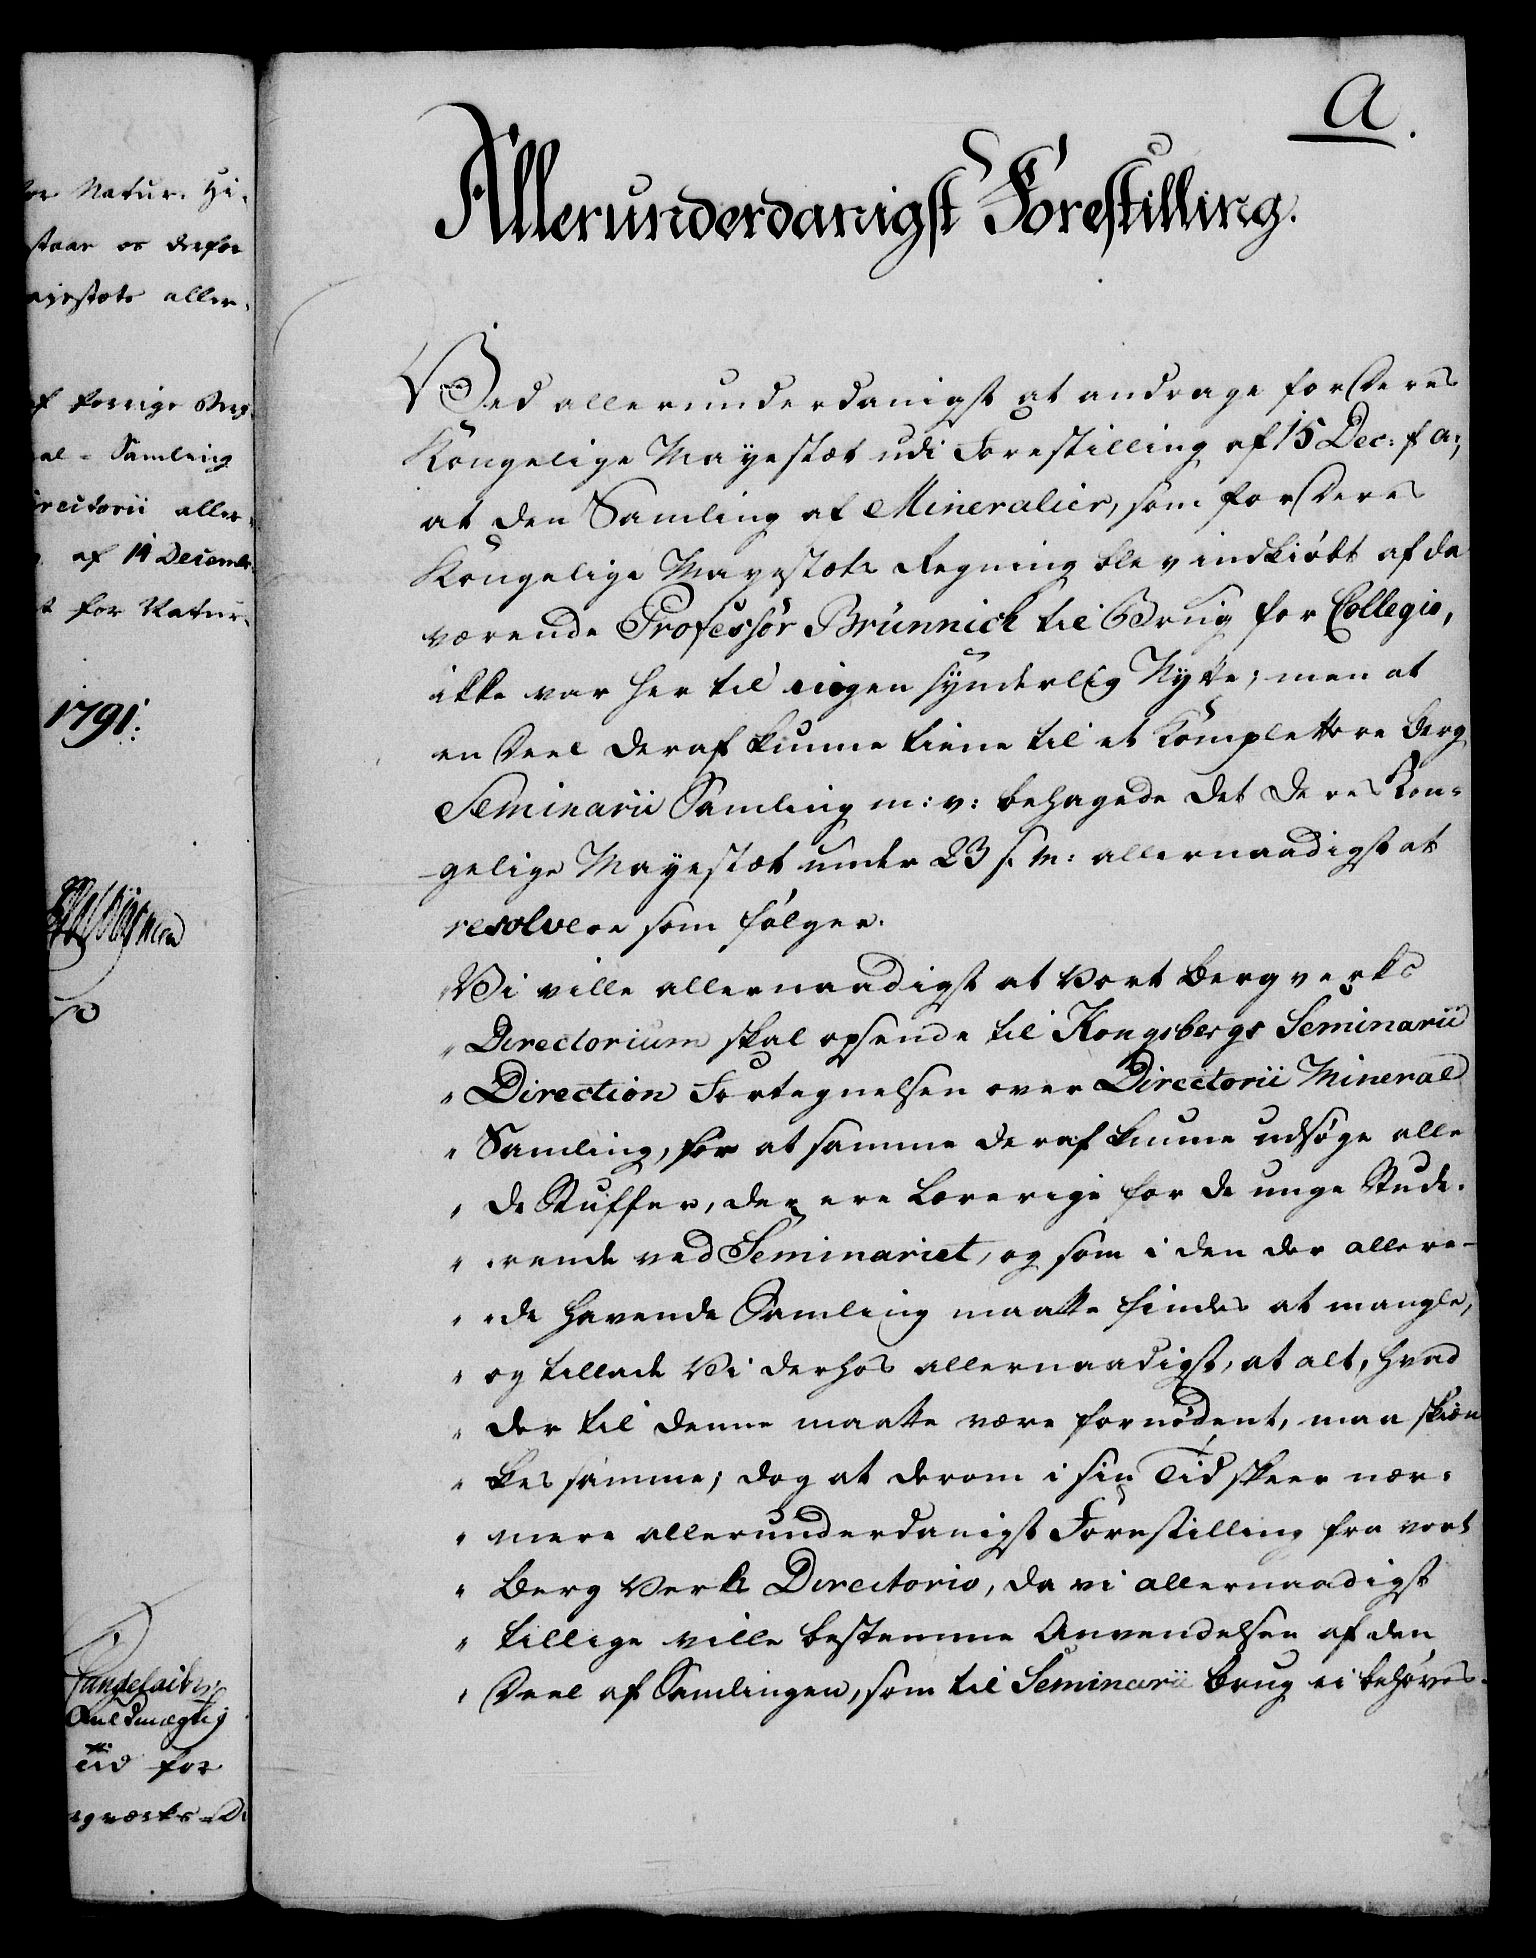 A.
Allerunderdanigst Forestilling.
Ved allerunderdanigst at andrage for Deres
Kongelige Mayestæt udi Forestilling af 15 Dec: f a:,
at den Samling af Mineralier, som for Deres
Kongelige Mayestæts Regning blev indkiøbt af da
værende Professor Brünnich til Brug for Collegio,
ikke var her til nogen synderlig Nytte; men at
en Deel deraf kunne tiene til et komplettere Berg
Seminarii Samling m: v: behagede det Deres Kon-
gelige Mayestæt under 23 s. M: allernaadigst at
resolvere som følger.
Vi ville allernaadigst at Vort Bergverks
" Directorium skal opsende til Kongsbergs Seminarii
" Direction Fortegnelsen over Directorii Mineral
" Samling, for at samme deraf kunne udsøge alle
" de Stuffer, der ere lærerige for de unge Stude-
" rende ved Seminariet, og som i den der allere-
" de havende Samling maatte findes at mangle,
" og tillade Vi derhos allernaadigst, at alt, hvad
" der til denne maatte være fornødent, maa skiæn
" kes samme; dog at derom i sin Tid skeer nær-
" mere allerunderdanigst Forestilling fra vort
" Berg Verks Directorio, da vi allernaadigst
" tillige ville bestemme Anvendelsen af den
" Deel af Samlingen, som til Seminarii Brug ei behøves.
Natur. Hi-
staar os derfor
ajestæts aller-
af forrige Berg-
al - Samling
irectorii aller-
af 14 December
t for Natur-
1791.
Fuldmægtig
tid for
rgværks-Di